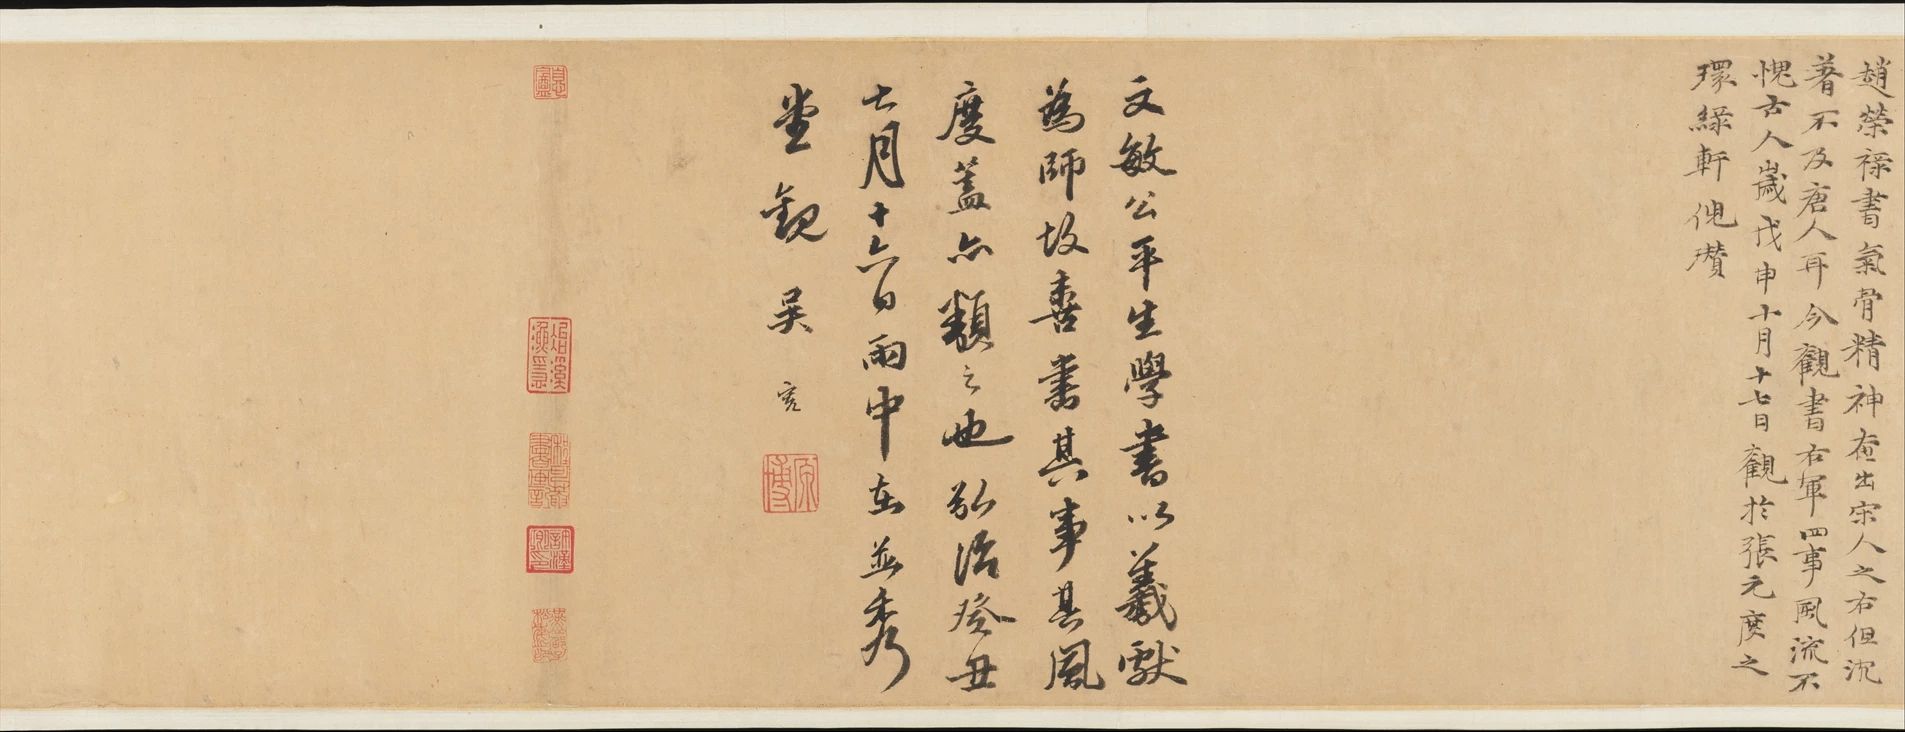 趙榮祿書氣骨精神在出宋人之右但沉
著不及唐人耳今觀書右軍四事風流不
愧古人歲戊申十月十七日觀於張元度之
環綠軒倪瓚
文敏公平生學書以羲獻
為師故喜書其事其風
度蓋亦類之也弘治癸丑
七月十六日雨中在並秀
堂觀吳寬
原博